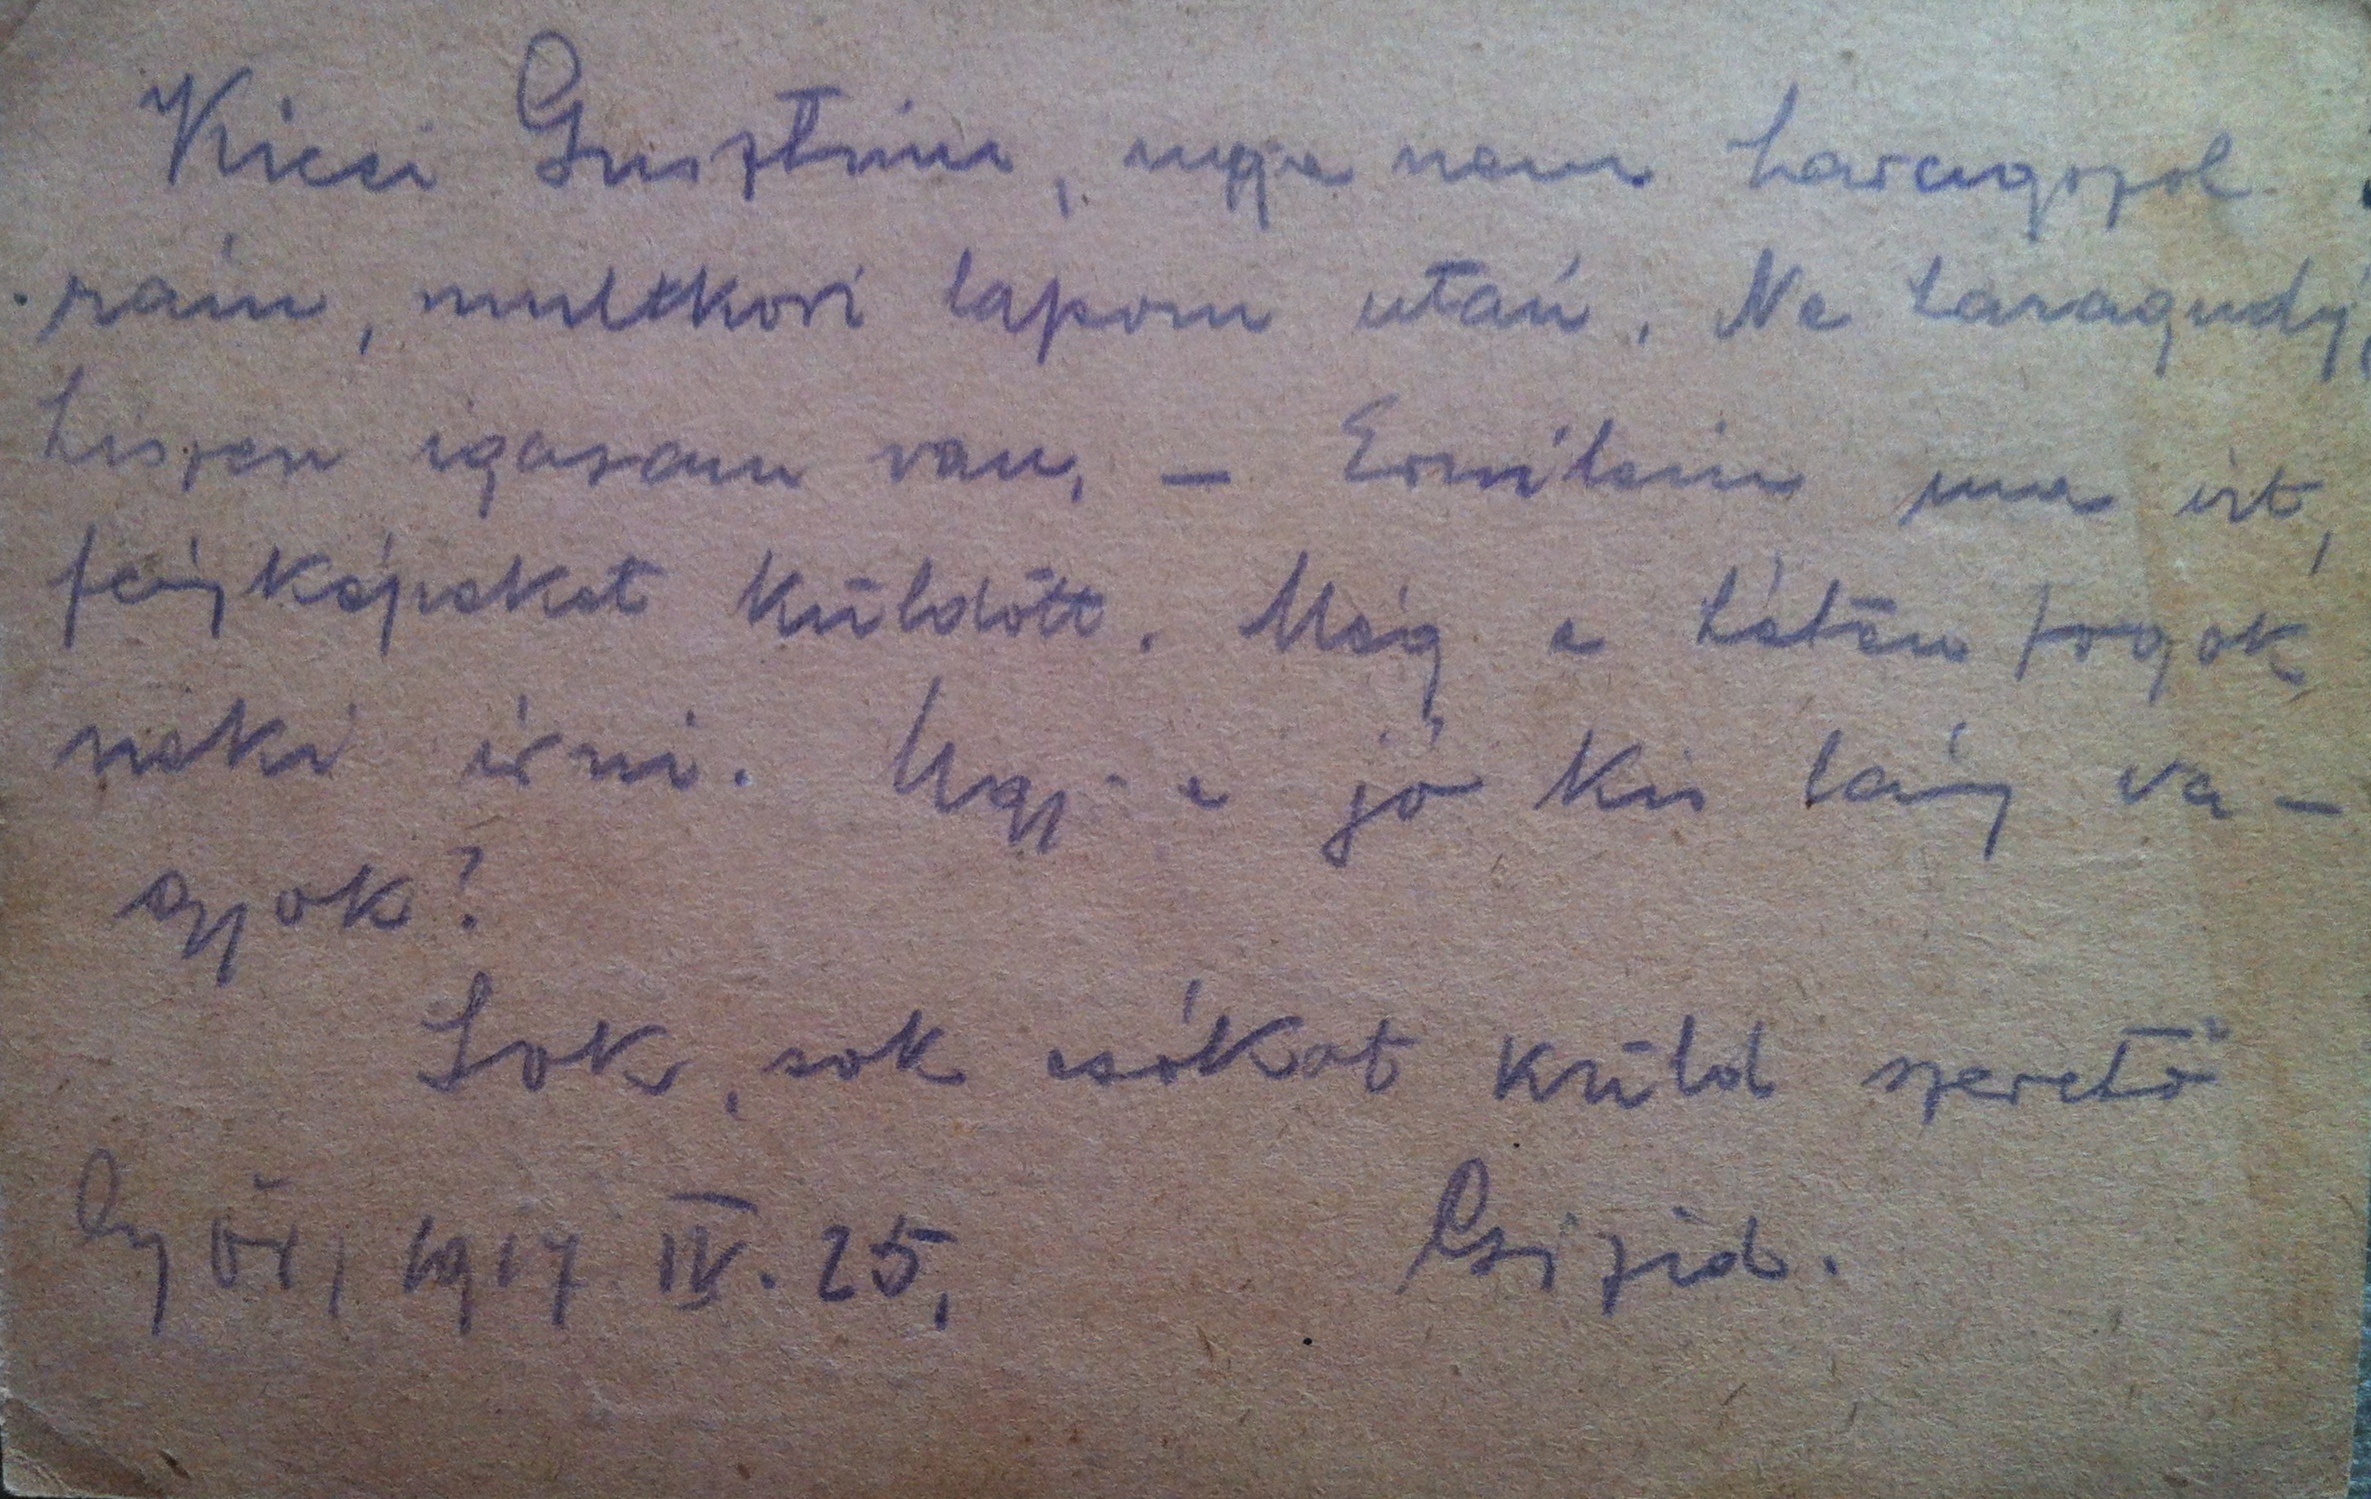 Kicsi Gusztim, ugye nem haragszol
rám, multkori lapom után. Ne haragudj
hiszen igazam van, – Ernőtein ma irt,
fényképeket küldött. Még e héten fogok
neki irni. Ugy-e jó kis lány va-
gyok?
Sok, sok csókot küld szerető
Győr, 1917 IV. 25, Csizid.